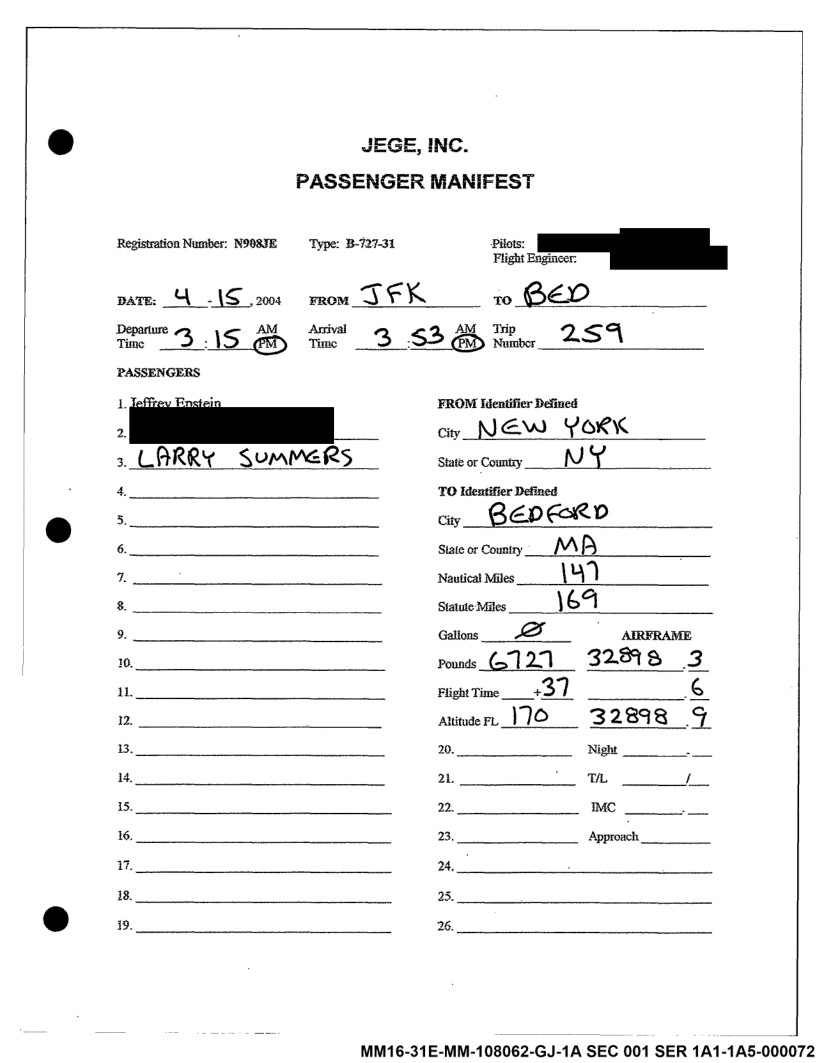 JEGE, INC.
PASSENGER MANIFEST
Registration Number: N908JE Type: B-727-31 Pilots:
Flight Engineer:
DATE: 4 - 15, 2004 FROM JFK TO BED
Departure Time 3 : 15 AM PM Arrival Time 3 : 53 AM PM Trip Number 259
PASSENGERS
1. Jeffrey Epstein FROM Identifier Defined
2. City NEW YORK
3. LARRY SUMMERS State or Country NY
4. TO Identifier Defined
5. City BEDFORD
6. State or Country MA
7. Nautical Miles 147
8. Statute Miles 169
9. Gallons Ø AIRFRAME
10. Pounds 6727 32898 .3
11. Flight Time +37 .6
12. Altitude FL 170 32898 .9
13. 20. Night -
14. 21. T/L /
15. 22. IMC .
16. 23. Approach
17. 24.
18. 25.
19. 26.
MM16-31E-MM-108062-GJ-1A SEC 001 SER 1A1-1A5-000072